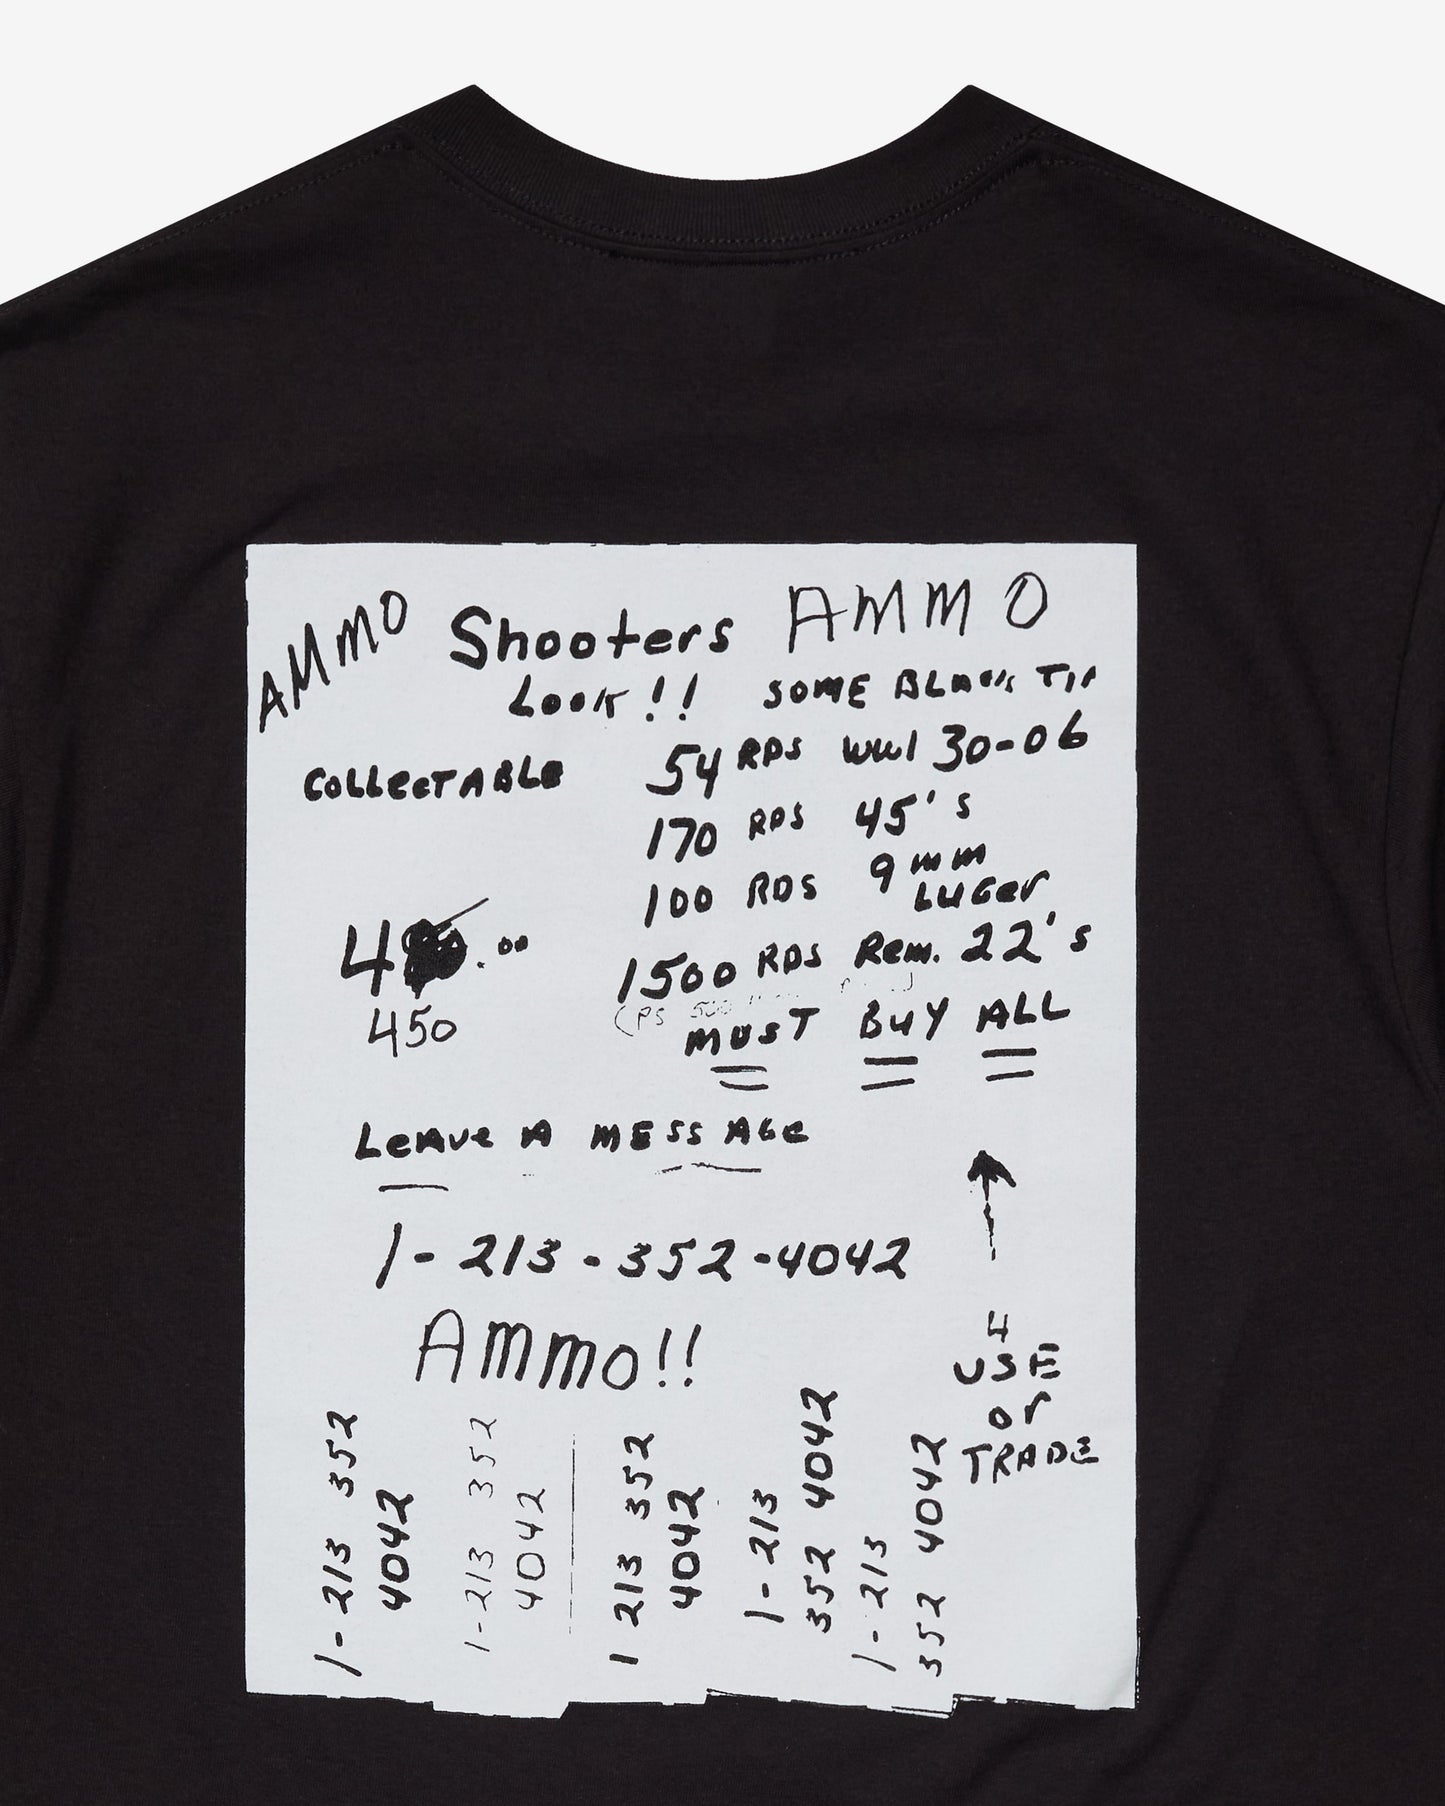 AMMO Shooters AMMO
Look!! SOME BLACK TIP
COLLECTABLE 54 RDS WW1 30-06
170 RDS 45's
100 RDS 9mm
LUGer
4 .00 1500 RDS Rem. 22's
450
MUST BUY ALL
LEAVE A MESSAGE
1-213-352-4042
AMMO!!
4
USE
or
TRADE
1-213 352
4042
1-213 352
4042
1 213 352
4042
1-213
352 4042
1-213
352 4042